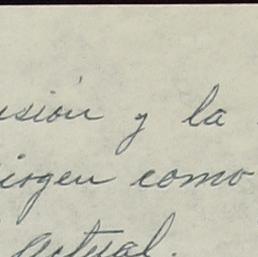 usión y la
irgen como
Actual.